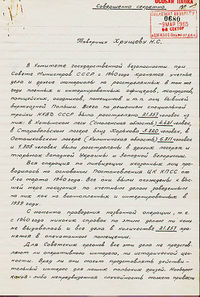 Особая папка
Совершенно секретно
0680
9 МАР 1965
Товарищу Хрущеву Н.С.
В Комитете государственной безопасности при
Совете Министров СССР с 1940 года хранятся учетные
дела и другие материалы на расстрелянных в том же
году пленных и интернированных офицеров, жандармов,
полицейских, осадников, помещиков и т.п. лиц бывшей
буржуазной Польши. Всего по решениям специальной
тройки НКВД СССР было расстреляно 21.857 человек, из
них: в Катынском лесу (Смоленская область) 4.421 человек,
в Старобельском лагере близ Харькова 3.820 человек, в
Осташковском лагере (Калининская область) 6.311 человек
и 7.305 человек были расстреляны в других лагерях и
тюрьмах Западной Украины и Западной Белоруссии.
Вся операция по ликвидации указанных лиц про-
водилась на основании Постановления ЦК КПСС от
5-го марта 1940 года. Все они были осуждены к выс-
шей мере наказания по учетным делам, заведенным
на них как на военнопленных и интернированных в
1939 году.
С момента проведения названной операции, т.е.
с 1940 года, никаких справок по этим делам никому
не выдавалось и все дела в количестве 21.857 хра-
нятся в опечатанном помещении.
Для Советских органов все эти дела не представ-
ляют ни оперативного интереса, ни исторической цен-
ности. Вряд ли они могут представлять действитель-
ный интерес для наших польских друзей. Наоборот,
какая-либо непредвиденная случайность может привести